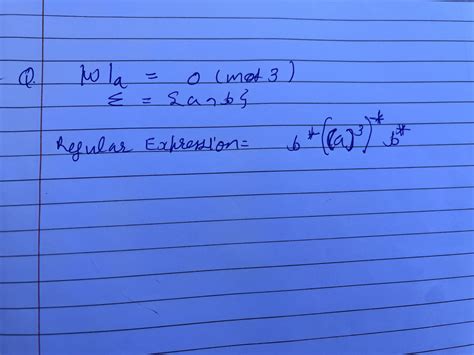 Q. |W|a = 0 (mod 3)
Σ = {a, b}
Regular Expression = b*((a)³)* b*